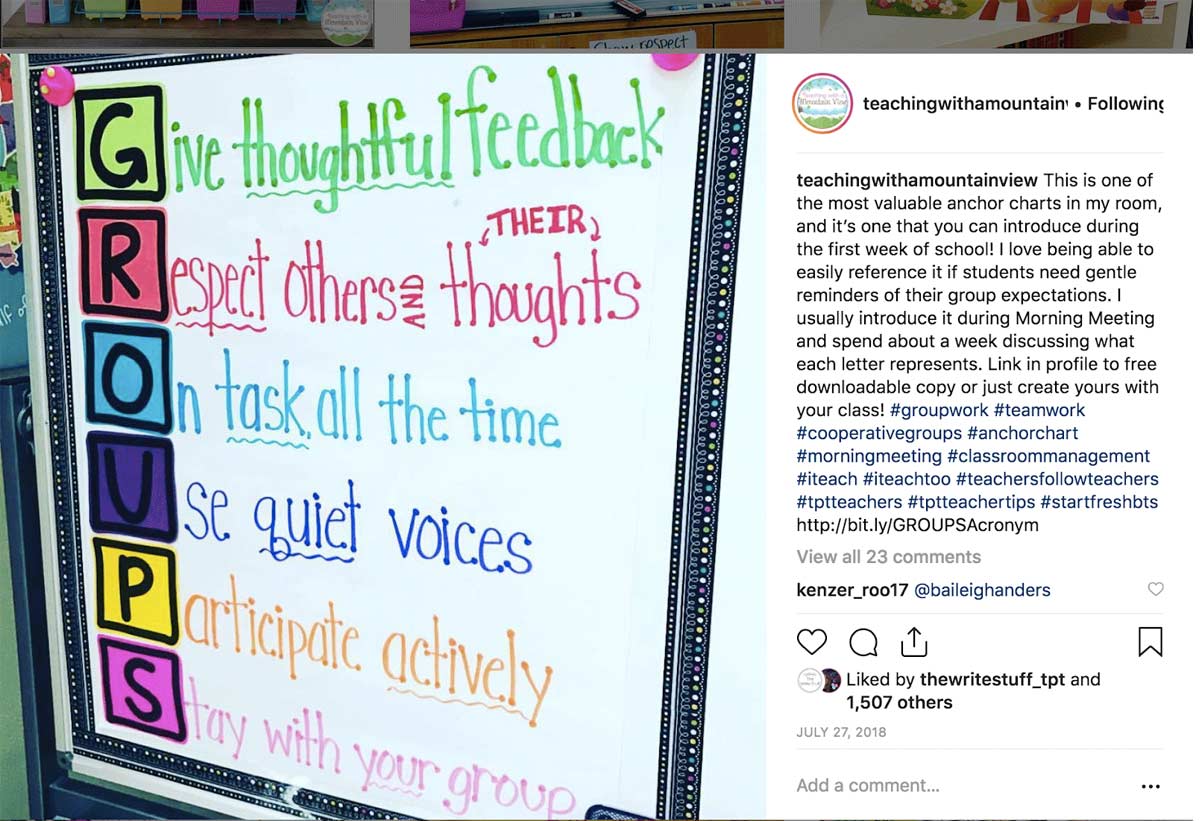 Teaching with a
Mountain View
Show respect
Give thoughtful feedback
THEIR
Respect others AND thoughts
On task all the time
Use quiet voices
Participate actively
Stay with your group
Teaching with a
Mountain View
teachingwithamountainv • Following
teachingwithamountainview This is one of
the most valuable anchor charts in my room,
and it's one that you can introduce during
the first week of school! I love being able to
easily reference it if students need gentle
reminders of their group expectations. I
usually introduce it during Morning Meeting
and spend about a week discussing what
each letter represents. Link in profile to free
downloadable copy or just create yours with
your class! #groupwork #teamwork
#cooperativegroups #anchorchart
#morningmeeting #classroommanagement
#iteach #iteachtoo #teachersfollowteachers
#tptteachers #tptteachertips #startfreshbts
http://bit.ly/GROUPSAcronym
View all 23 comments
kenzer_roo17 @baileighanders
Liked by thewritestuff_tpt and
1,507 others
JULY 27, 2018
Add a comment...